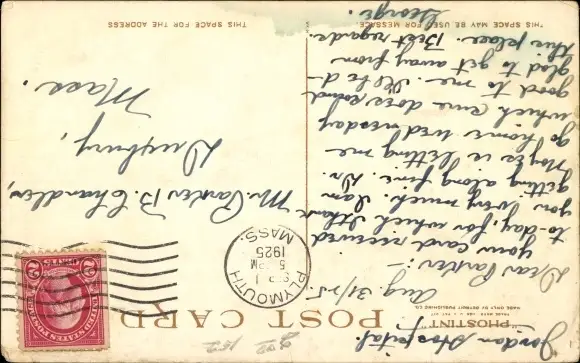 Jordan Hospital.
"PHOSTINT"
TRADE MARK REG. U.S. PAT. OFF.
MADE ONLY BY DETROIT PUBLISHING CO.
POST CARD
Aug. 31/25.
Dear Parker:-
your card received
to-day, for which I thank
you very much. I am
getting along fine. Dr.
Noyes is letting me
go home wednesday
which sure does sound
good to me. I'll be d-
glad to get away from
this place. Best regards.
George.
THIS SPACE MAY BE USED FOR MESSAGE
PLYMOUTH
SEP 1
5 PM
1925
MASS.
UNITED STATES POSTAGE
2 CENTS 2
Mr. Parker B. Chandler,
Duxbury,
Mass.
THIS SPACE FOR THE ADDRESS